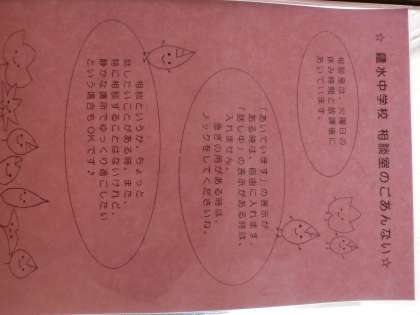 ☆ 鑓水中学校 相談室のごあんない☆
相談室は、火曜日の
休み時間と放課後に
あいています。
「あいています」の表示が
ある時は、自由に入れます。
「話し中」の表示がある時は、
入れません。
急ぎの用がある時は、
ノックをしてくださいね。
相談というか、ちょっと
話したいことがある時、また
特に相談することはないけれど、
静かな場所でゆっくり過ごしたい
という場合もOKです♪